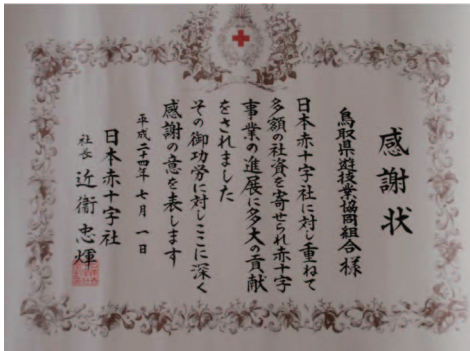 感謝状
鳥取県遊技業協同組合様
日本赤十字社に対し重ねて
多額の社資を寄せられ赤十字
事業の進展に多大の貢献
をされました
その御功労に対しここに深く
感謝の意を表します
平成二十四年七月一日
日本赤十字社
社長 近衞忠煇